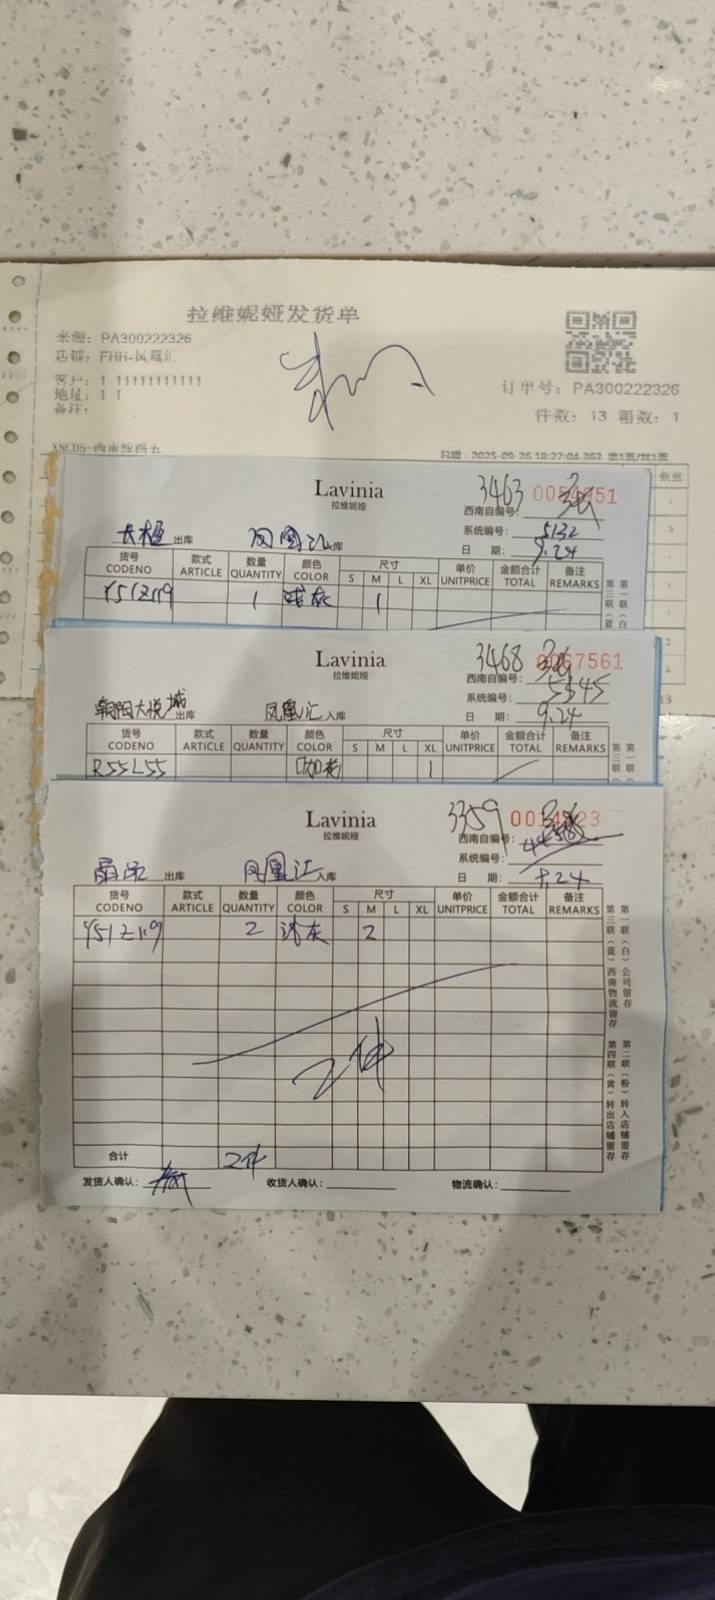 拉维妮娅发货单
来源: PA300222326
店铺: FHH-凤凰汇
客户: 1 11111111111
地址: 1 1
备注:
订单号: PA300222326
件数: 13 箱数: 1
日期: 2025-09-26 18:27:04.363 第1页/共1页
数量
Lavinia
拉维妮娅
3463
西南自编号:
系统编号: 5132
日 期: 9.24
出库 凤凰汇入库
货号 款式 数量 颜色 尺寸 单价 金额合计 备注
CODENO ARTICLE QUANTITY COLOR S M L XL UNITPRICE TOTAL REMARKS
Y51Z119 1 1
Lavinia
拉维妮娅
3468 0067561
西南自编号:
系统编号: 5345
日 期: 9.24
朝阳大悦城出库 凤凰汇入库
货号 款式 数量 颜色 尺寸 单价 金额合计 备注
CODENO ARTICLE QUANTITY COLOR S M L XL UNITPRICE TOTAL REMARKS
R55L55 咖花 1
Lavinia
拉维妮娅
3359
西南自编号:
系统编号:
日 期:
出库 凤凰汇入库
货号 款式 数量 颜色 尺寸 单价 金额合计 备注
CODENO ARTICLE QUANTITY COLOR S M L XL UNITPRICE TOTAL REMARKS
Y51Z119 2 2
2件
合计 2件
发货人确认: 收货人确认: 物流确认:
第一联（白）公司留存
第二联（粉）转入店铺留存
第三联（蓝）西南物流留存
第四联（黄）转出店铺留存